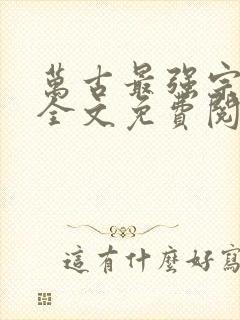 萬古最強宗
全文免費閱
這有什麼好寫